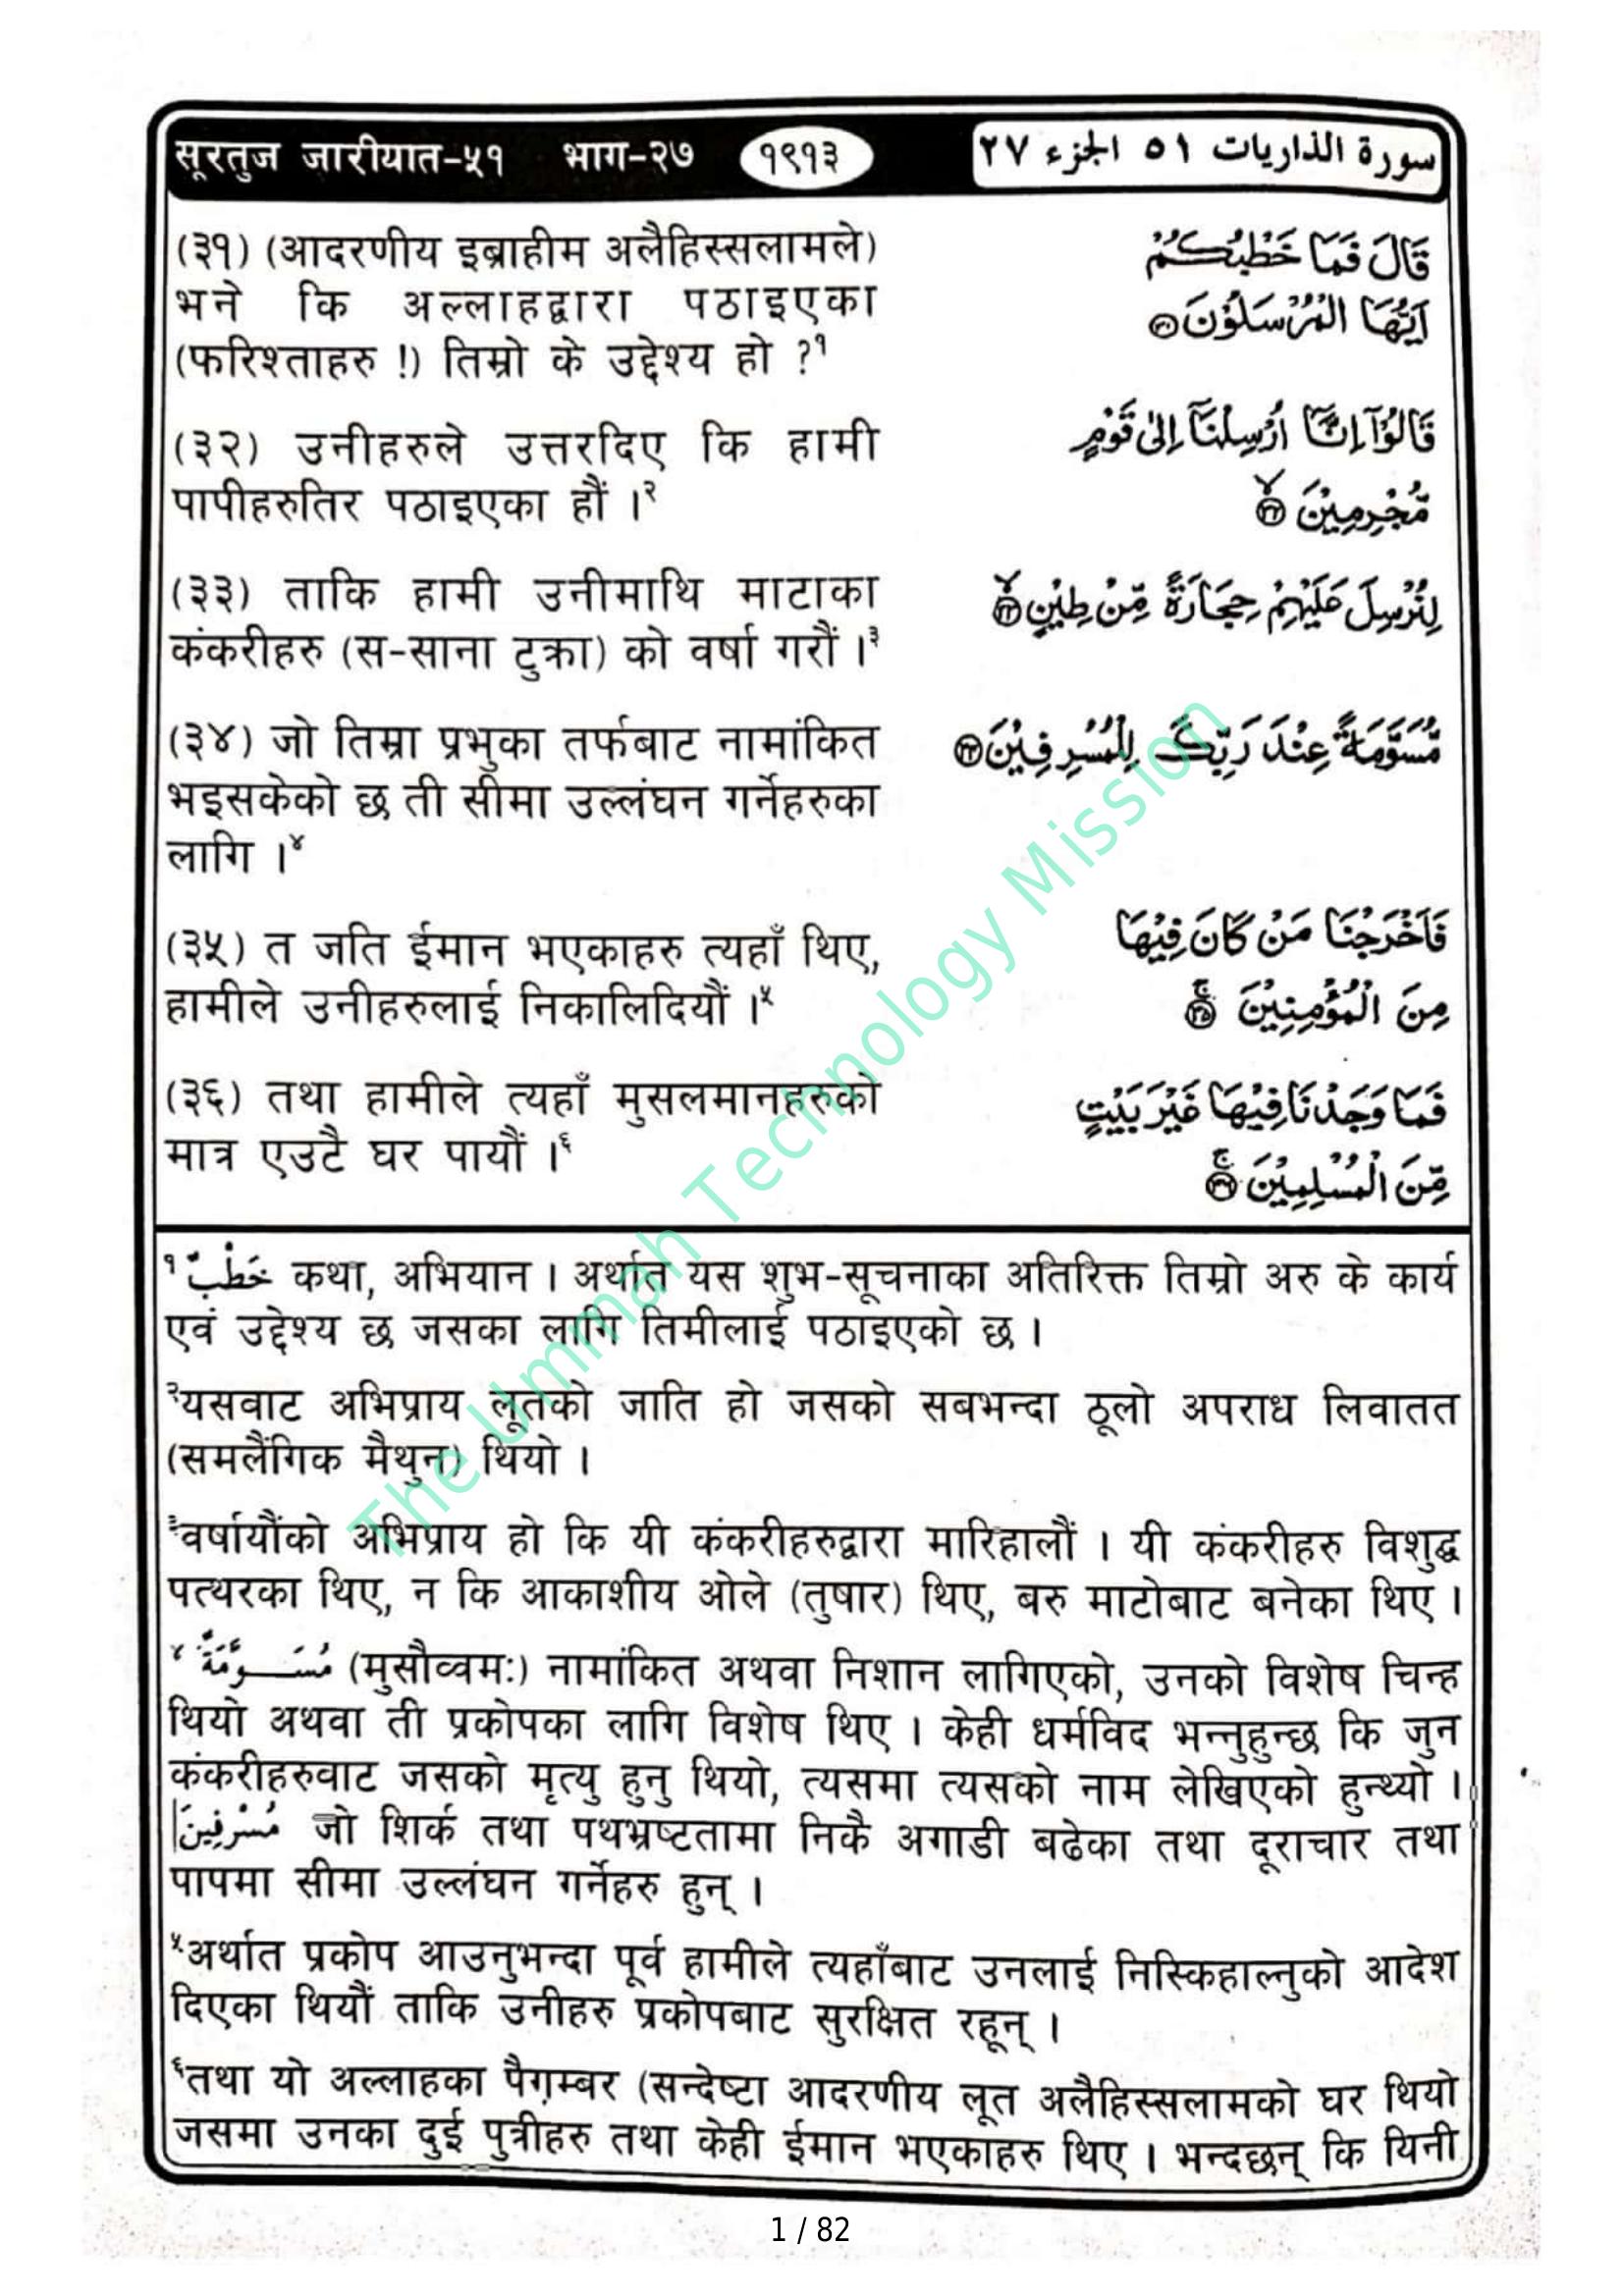 सूरतुज जारीयात-५१ भाग-२७ १९१३ سورة الذاريات ٥١ الجزء ٢٧
(३१) (आदरणीय इब्राहीम अलैहिस्सलामले)
भने कि अल्लाहद्वारा पठाइएका
(फरिश्ताहरु !) तिम्रो के उद्देश्य हो ?१
قَالَ فَمَا خَطْبُكُمْ
اَيُّهَا الْمُرْسَلُوْنَ ۝٣١
(३२) उनीहरुले उत्तरदिए कि हामी
पापीहरुतिर पठाइएका हौं ।२
قَالُوْٓا اِنَّآ اُرْسِلْنَآ اِلٰى قَوْمٍ
مُّجْرِمِيْنَ ۝٣٢
(३३) ताकि हामी उनीमाथि माटाका
कंकरीहरु (स-साना टुक्रा) को वर्षा गरौं ।३
لِنُرْسِلَ عَلَيْهِمْ حِجَارَةً مِّنْ طِيْنٍ ۝٣٣
(३४) जो तिम्रा प्रभुका तर्फबाट नामांकित
भइसकेको छ ती सीमा उल्लंघन गर्नेहरुका
लागि ।४
مُّسَوَّمَةً عِنْدَ رَبِّكَ لِلْمُسْرِفِيْنَ ۝٣٤
(३५) त जति ईमान भएकाहरु त्यहाँ थिए,
हामीले उनीहरुलाई निकालिदियौं ।५
فَاَخْرَجْنَا مَنْ كَانَ فِيْهَا
مِنَ الْمُؤْمِنِيْنَ ۝٣٥
(३६) तथा हामीले त्यहाँ मुसलमानहरुको
मात्र एउटै घर पायौं ।६
فَمَا وَجَدْنَا فِيْهَا غَيْرَ بَيْتٍ
مِّنَ الْمُسْلِمِيْنَ ۝٣٦
१ خَطْبٌ कथा, अभियान । अर्थात यस शुभ-सूचनाका अतिरिक्त तिम्रो अरु के कार्य
एवं उद्देश्य छ जसका लागि तिमीलाई पठाइएको छ ।
२यसवाट अभिप्राय लूतको जाति हो जसको सबभन्दा ठूलो अपराध लिवातत
(समलैंगिक मैथुन) थियो ।
३वर्षायौंको अभिप्राय हो कि यी कंकरीहरुद्वारा मारिहालौं । यी कंकरीहरु विशुद्ध
पत्थरका थिए, न कि आकाशीय ओले (तुषार) थिए, बरु माटोबाट बनेका थिए ।
४ مُسَوَّمَةً (मुसौव्वमः) नामांकित अथवा निशान लागिएको, उनको विशेष चिन्ह
थियो अथवा ती प्रकोपका लागि विशेष थिए । केही धर्मविद भन्नुहुन्छ कि जुन
कंकरीहरुवाट जसको मृत्यु हुनु थियो, त्यसमा त्यसको नाम लेखिएको हुन्थ्यो ।
مُسْرِفِينَ जो शिर्क तथा पथभ्रष्टतामा निकै अगाडी बढेका तथा दूराचार तथा
पापमा सीमा उल्लंघन गर्नेहरु हुन् ।
५अर्थात प्रकोप आउनुभन्दा पूर्व हामीले त्यहाँबाट उनलाई निस्किहाल्नुको आदेश
दिएका थियौं ताकि उनीहरु प्रकोपबाट सुरक्षित रहून् ।
६तथा यो अल्लाहका पैग़म्बर (सन्देष्टा आदरणीय लूत अलैहिस्सलामको घर थियो
जसमा उनका दुई पुत्रीहरु तथा केही ईमान भएकाहरु थिए । भन्दछन् कि यिनी
The Ummah Technology Mission
1 / 82